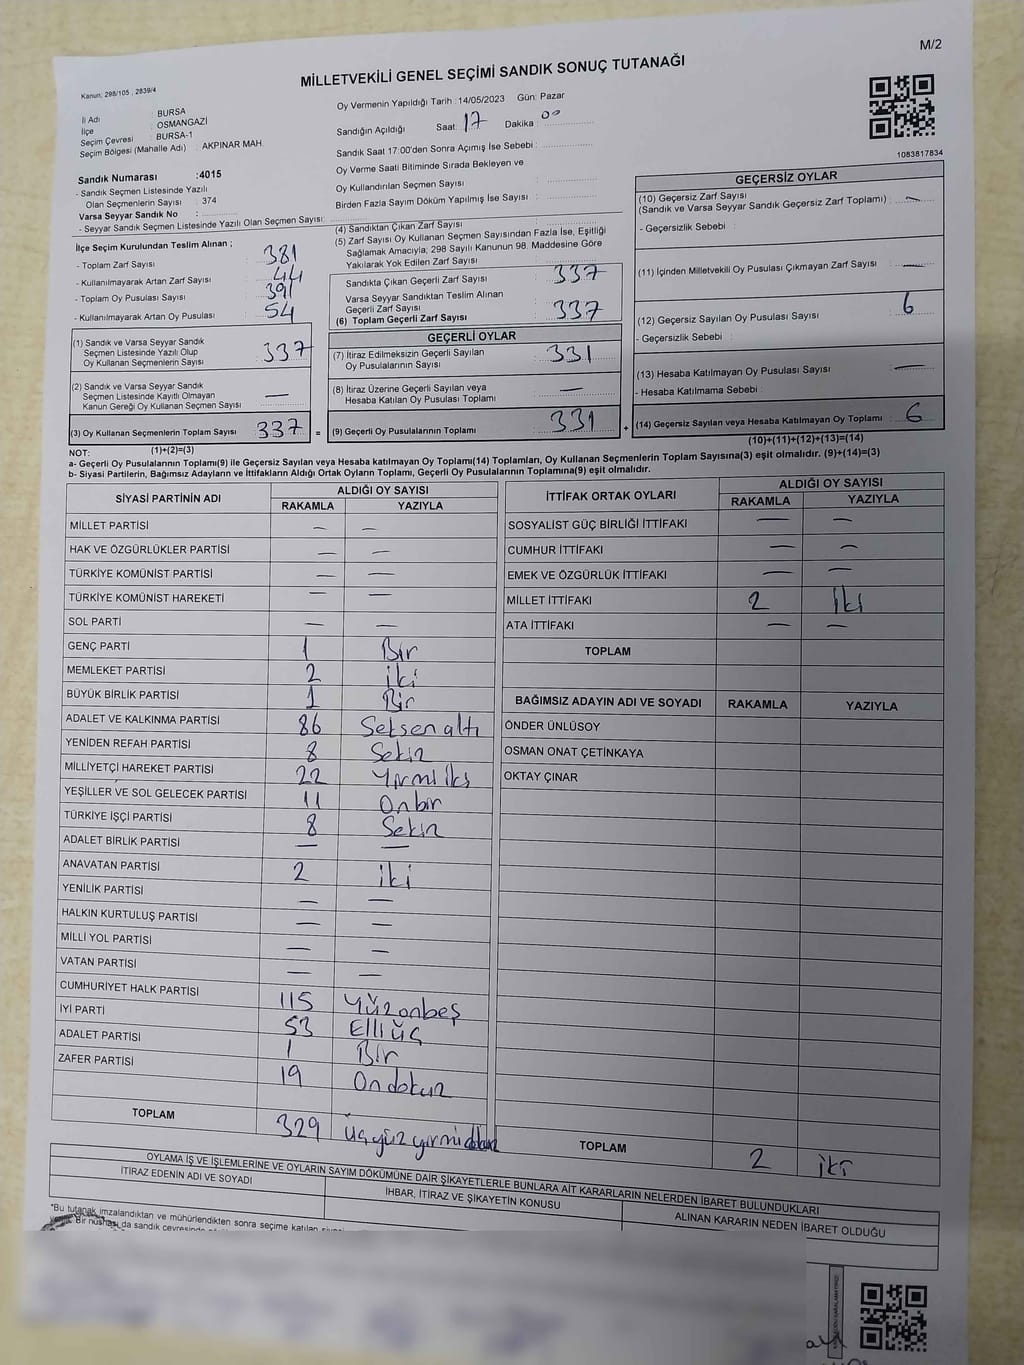 M/2
MİLLETVEKİLİ GENEL SEÇİMİ SANDIK SONUÇ TUTANAĞI
Kanun; 298/105 , 2839/4
İl Adı : BURSA
İlçe : OSMANGAZİ
Seçim Çevresi : BURSA-1
Seçim Bölgesi (Mahalle Adı) : AKPINAR MAH.
Sandık Numarası :4015
- Sandık Seçmen Listesinde Yazılı
Olan Seçmenlerin Sayısı : 374
Varsa Seyyar Sandık No :
- Seyyar Sandık Seçmen Listesinde Yazılı Olan Seçmen Sayısı:
Oy Vermenin Yapıldığı Tarih :14/05/2023 Gün: Pazar
Sandığın Açıldığı Saat: 17 Dakika : 00
Sandık Saat 17:00'den Sonra Açımış İse Sebebi :
Oy Verme Saati Bitiminde Sırada Bekleyen ve
Oy Kullandırılan Seçmen Sayısı :
Birden Fazla Sayım Döküm Yapılmış İse Sayısı :
1083817834
İlçe Seçim Kurulundan Teslim Alınan ;
- Toplam Zarf Sayısı : 381
- Kullanılmayarak Artan Zarf Sayısı : 44
- Toplam Oy Pusulası Sayısı : 391
- Kullanılmayarak Artan Oy Pusulası : 54
(1) Sandık ve Varsa Seyyar Sandık
Seçmen Listesinde Yazılı Olup
Oy Kullanan Seçmenlerin Sayısı : 337
(2) Sandık ve Varsa Seyyar Sandık
Seçmen Listesinde Kayıtlı Olmayan
Kanun Gereği Oy Kullanan Seçmen Sayısı : —
(3) Oy Kullanan Seçmenlerin Toplam Sayısı : 337 =
(4) Sandıktan Çıkan Zarf Sayısı :
(5) Zarf Sayısı Oy Kullanan Seçmen Sayısından Fazla İse, Eşitliği
Sağlamak Amacıyla; 298 Sayılı Kanunun 98. Maddesine Göre
Yakılarak Yok Edilen Zarf Sayısı :
Sandıkta Çıkan Geçerli Zarf Sayısı : 337
Varsa Seyyar Sandıktan Teslim Alınan
Geçerli Zarf Sayısı :
(6) Toplam Geçerli Zarf Sayısı : 337
GEÇERLİ OYLAR
(7) İtiraz Edilmeksizin Geçerli Sayılan
Oy Pusulalarının Sayısı : 331
(8) İtiraz Üzerine Geçerli Sayılan veya
Hesaba Katılan Oy Pusulası Toplamı : —
(9) Geçerli Oy Pusulalarının Toplamı : 331 +
GEÇERSİZ OYLAR
(10) Geçersiz Zarf Sayısı
(Sandık ve Varsa Seyyar Sandık Geçersiz Zarf Toplamı) : —
- Geçersizlik Sebebi :
(11) İçinden Milletvekili Oy Pusulası Çıkmayan Zarf Sayısı : —
(12) Geçersiz Sayılan Oy Pusulası Sayısı : 6
- Geçersizlik Sebebi :
(13) Hesaba Katılmayan Oy Pusulası Sayısı : —
- Hesaba Katılmama Sebebi :
(14) Geçersiz Sayılan veya Hesaba Katılmayan Oy Toplamı : 6
NOT: (1)+(2)=(3) (10)+(11)+(12)+(13)=(14)
a- Geçerli Oy Pusulalarının Toplamı(9) ile Geçersiz Sayılan veya Hesaba katılmayan Oy Toplamı(14) Toplamları, Oy Kullanan Seçmenlerin Toplam Sayısına(3) eşit olmalıdır. (9)+(14)=(3)
b- Siyasi Partilerin, Bağımsız Adayların ve İttifakların Aldığı Ortak Oyların Toplamı, Geçerli Oy Pusulalarının Toplamına(9) eşit olmalıdır.
SİYASİ PARTİNİN ADI ALDIĞI OY SAYISI
RAKAMLA YAZIYLA
MİLLET PARTİSİ — —
HAK VE ÖZGÜRLÜKLER PARTİSİ — —
TÜRKİYE KOMÜNİST PARTİSİ — —
TÜRKİYE KOMÜNİST HAREKETİ — —
SOL PARTİ — —
GENÇ PARTİ 1 Bir
MEMLEKET PARTİSİ 2 iki
BÜYÜK BİRLİK PARTİSİ 1 Bir
ADALET VE KALKINMA PARTİSİ 86 Seksen altı
YENİDEN REFAH PARTİSİ 8 Sekiz
MİLLİYETÇİ HAREKET PARTİSİ 22 Yirmi iki
YEŞİLLER VE SOL GELECEK PARTİSİ 11 Onbir
TÜRKİYE İŞÇİ PARTİSİ 8 Sekiz
ADALET BİRLİK PARTİSİ — —
ANAVATAN PARTİSİ 2 iki
YENİLİK PARTİSİ — —
HALKIN KURTULUŞ PARTİSİ — —
MİLLİ YOL PARTİSİ — —
VATAN PARTİSİ — —
CUMHURİYET HALK PARTİSİ 115 Yüzonbeş
İYİ PARTİ 53 Elli üç
ADALET PARTİSİ 1 Bir
ZAFER PARTİSİ 19 Ondokuz
TOPLAM 329 üçyüz yirmi dokuz
İTTİFAK ORTAK OYLARI ALDIĞI OY SAYISI
RAKAMLA YAZIYLA
SOSYALİST GÜÇ BİRLİĞİ İTTİFAKI — —
CUMHUR İTTİFAKI — —
EMEK VE ÖZGÜRLÜK İTTİFAKI — —
MİLLET İTTİFAKI 2 İki
ATA İTTİFAKI — —
TOPLAM
BAĞIMSIZ ADAYIN ADI VE SOYADI RAKAMLA YAZIYLA
ÖNDER ÜNLÜSOY
OSMAN ONAT ÇETİNKAYA
OKTAY ÇINAR
TOPLAM 2 iki
OYLAMA İŞ VE İŞLEMLERİNE VE OYLARIN SAYIM DÖKÜMÜNE DAİR ŞİKAYETLERLE BUNLARA AİT KARARLARIN NELERDEN İBARET BULUNDUKLARI
İTİRAZ EDENİN ADI VE SOYADI İHBAR, İTİRAZ VE ŞİKAYETİN KONUSU ALINAN KARARIN NEDEN İBARET OLDUĞU
"Bu tutanak imzalandıktan ve mühürlendikten sonra seçime katılan
Bir nüshası da sandık çevresinde